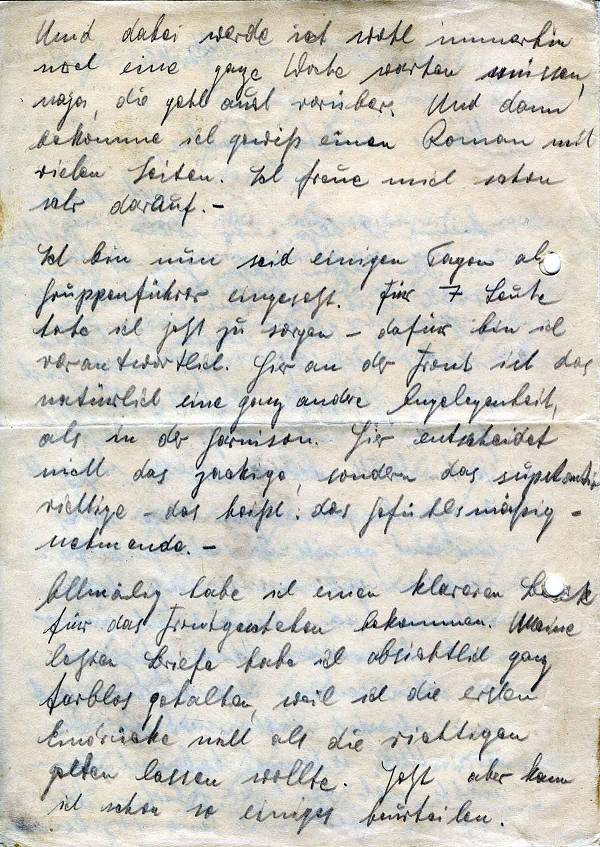 Und dabei werde ich wohl immerhin
noch eine ganze Woche warten müssen,
naja, die geht auch vorüber. Und dann
bekomme ich gewiß einen Roman mit
vielen Seiten. Ich freue mich schon
sehr darauf. –
Ich bin nun seid einigen Tagen als
Gruppenführer eingesetzt. Für 7 Leute
habe ich jetzt zu sorgen – dafür bin ich
verantwortlich. Hier an der Front ist das
natürlich eine ganz andre Angelegenheit,
als in der Garnison. Hier entscheidet
nicht das zackige, sondern das
richtige – das heißt: das Gefühlsmäßig-
nehmende. –
Allmälig habe ich einen klareren Blick
für das Frontgeschehen bekommen. Meine
letzten Briefe habe ich absichtlich ganz
farblos gehalten, weil ich die ersten
Eindrücke nicht als die richtigen
gelten lassen wollte. Jetzt aber kann
ich schon so einiges beurteilen.